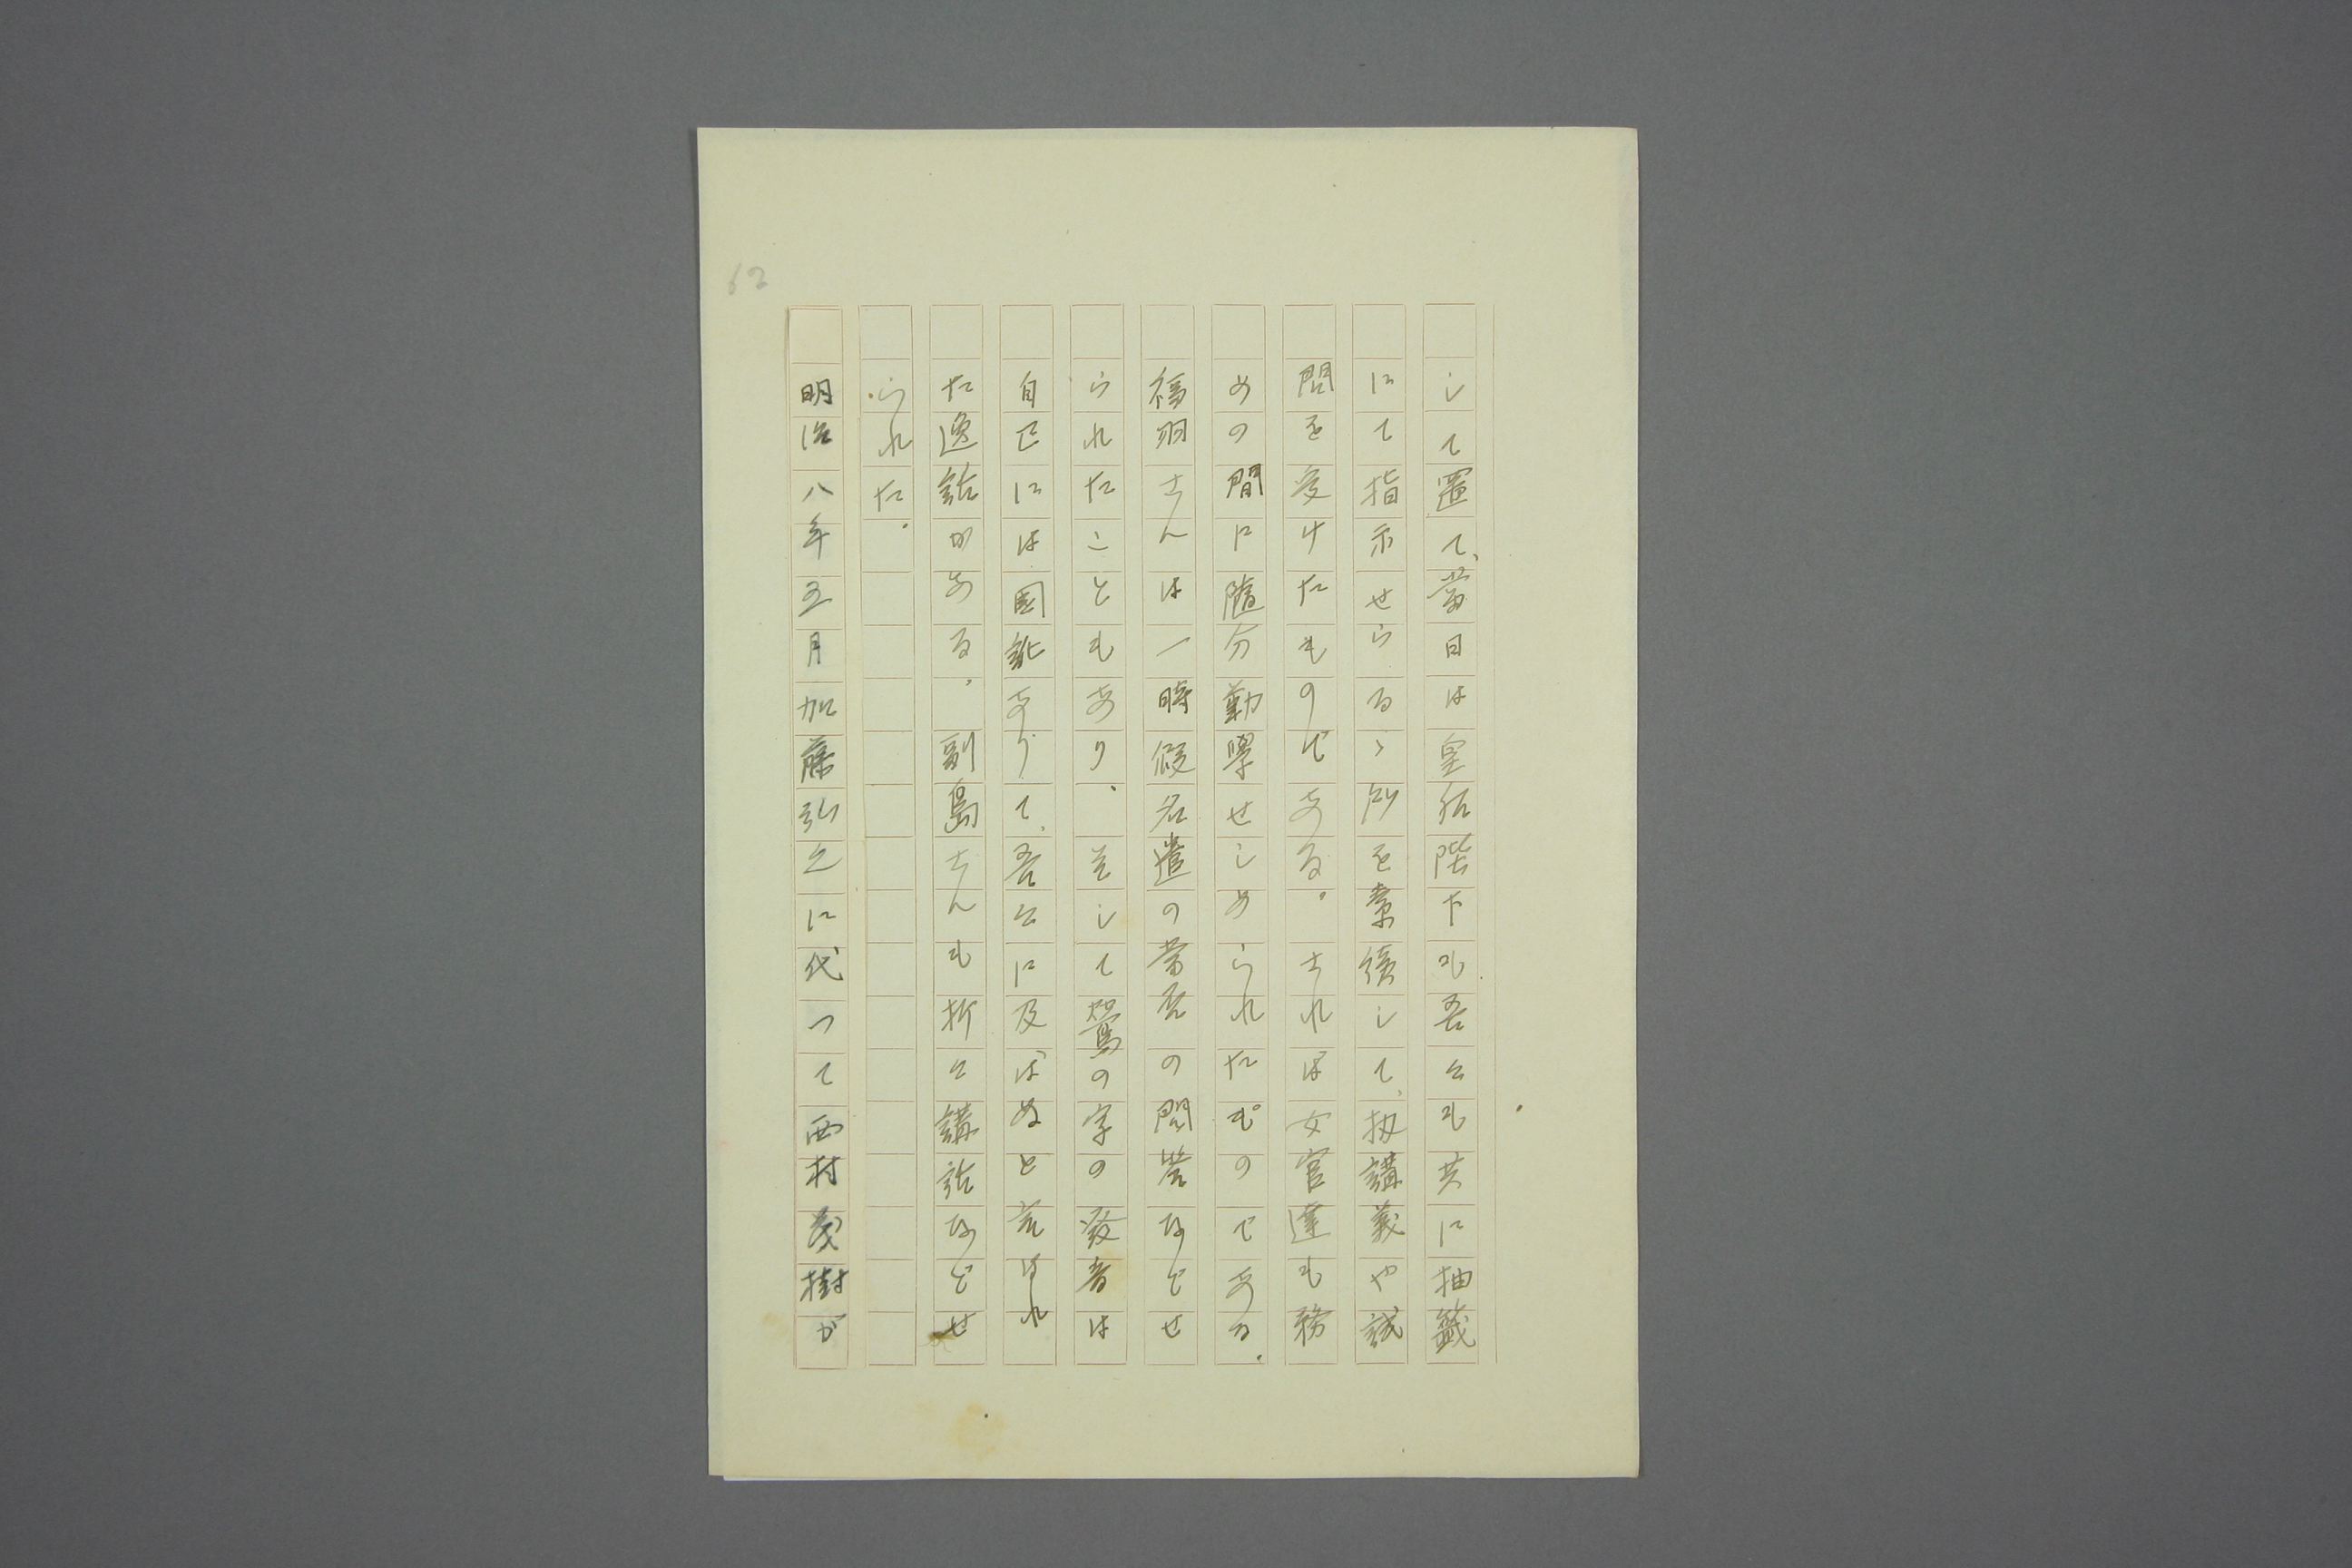 して置て、當日は皇后陛下も吾々も共に抽籤
にて指示せらるゝ所を素讀して、扨講義や試
問を受けたものである。されば女官達も務
めの間に隨分勤學せしめられたものである。
福羽さんは一時假名遣の當否の問答などせ
られたこともあり、そして鶯の字の發音は
自己には国訛ありて、吾々に及ばぬと言はれ
た逸話がある。副島さんも折々講話などせ
られた。
明治八年五月加藤弘之に代つて西村茂樹が
62